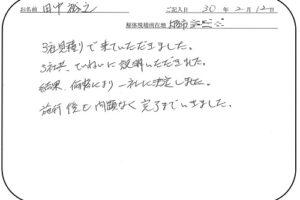 お名前 田中 裕之 ご記入日 30年 2月 12日
解体現場所在地
3社見積りで来ていただきました。
3社共、ていねいに説明いただきました。
結果、価格により一社に決定しました。
施行後も問題なく完了までいきました。